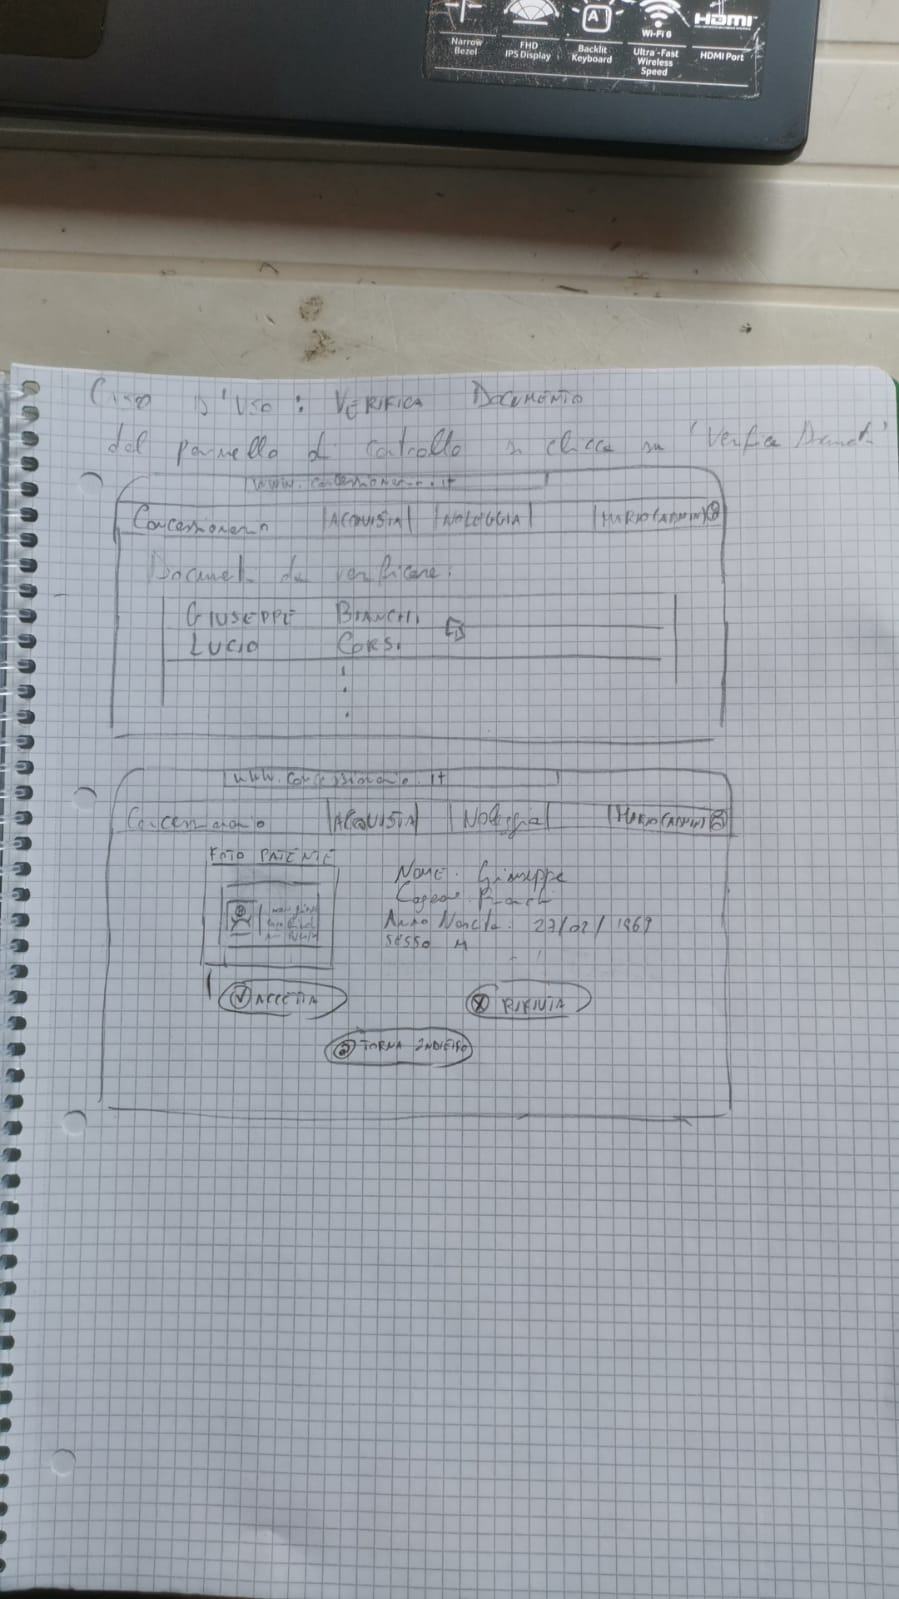 Narrow Bezel
FHD IPS Display
A
Backlit Keyboard
Wi-Fi 6
Ultra-Fast Wireless Speed
HDMI
HDMI Port
CASO D'USO: VERIFICA DOCUMENTO
dal pannello di controllo si clicca su "Verifica
www.concessionario.it
Concessionario ACQUISTA NOLEGGIA MARIO (ADMIN)
Documenti da verificare:
GIUSEPPE BIANCHI
LUCIO CORSI
www.concessionario.it
Concessionario ACQUISTA Noleggia MARIO (ADMIN)
FOTO PATENTE
NOME: Giuseppe
Cognome: Bianchi
Anno Nascita: 27/02/1969
SESSO M
ACCETTA
RIFIUTA
TORNA INDIETRO